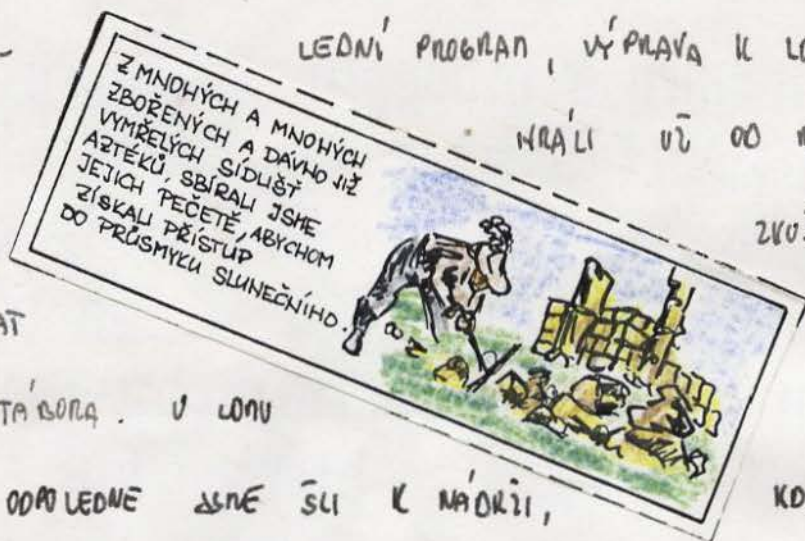 LEDNÍ PROGRAM, VÝPRAVA K
HRÁLI UŽ OD
Z MNOHÝCH A MNOHÝCH
ZBOŘENÝCH A DÁVNO JIŽ
VYMŘELÝCH SÍDLIŠŤ
AZTÉKŮ, SBÍRALI JSME
JEJICH PEČETĚ, ABYCHOM
ZÍSKALI PŘÍSTUP
DO PRŮSMYKU SLUNEČNÍHO.
TÁBORA. V LOMU
ODPOLEDNE JSME ŠLI K NÁDRŽI,